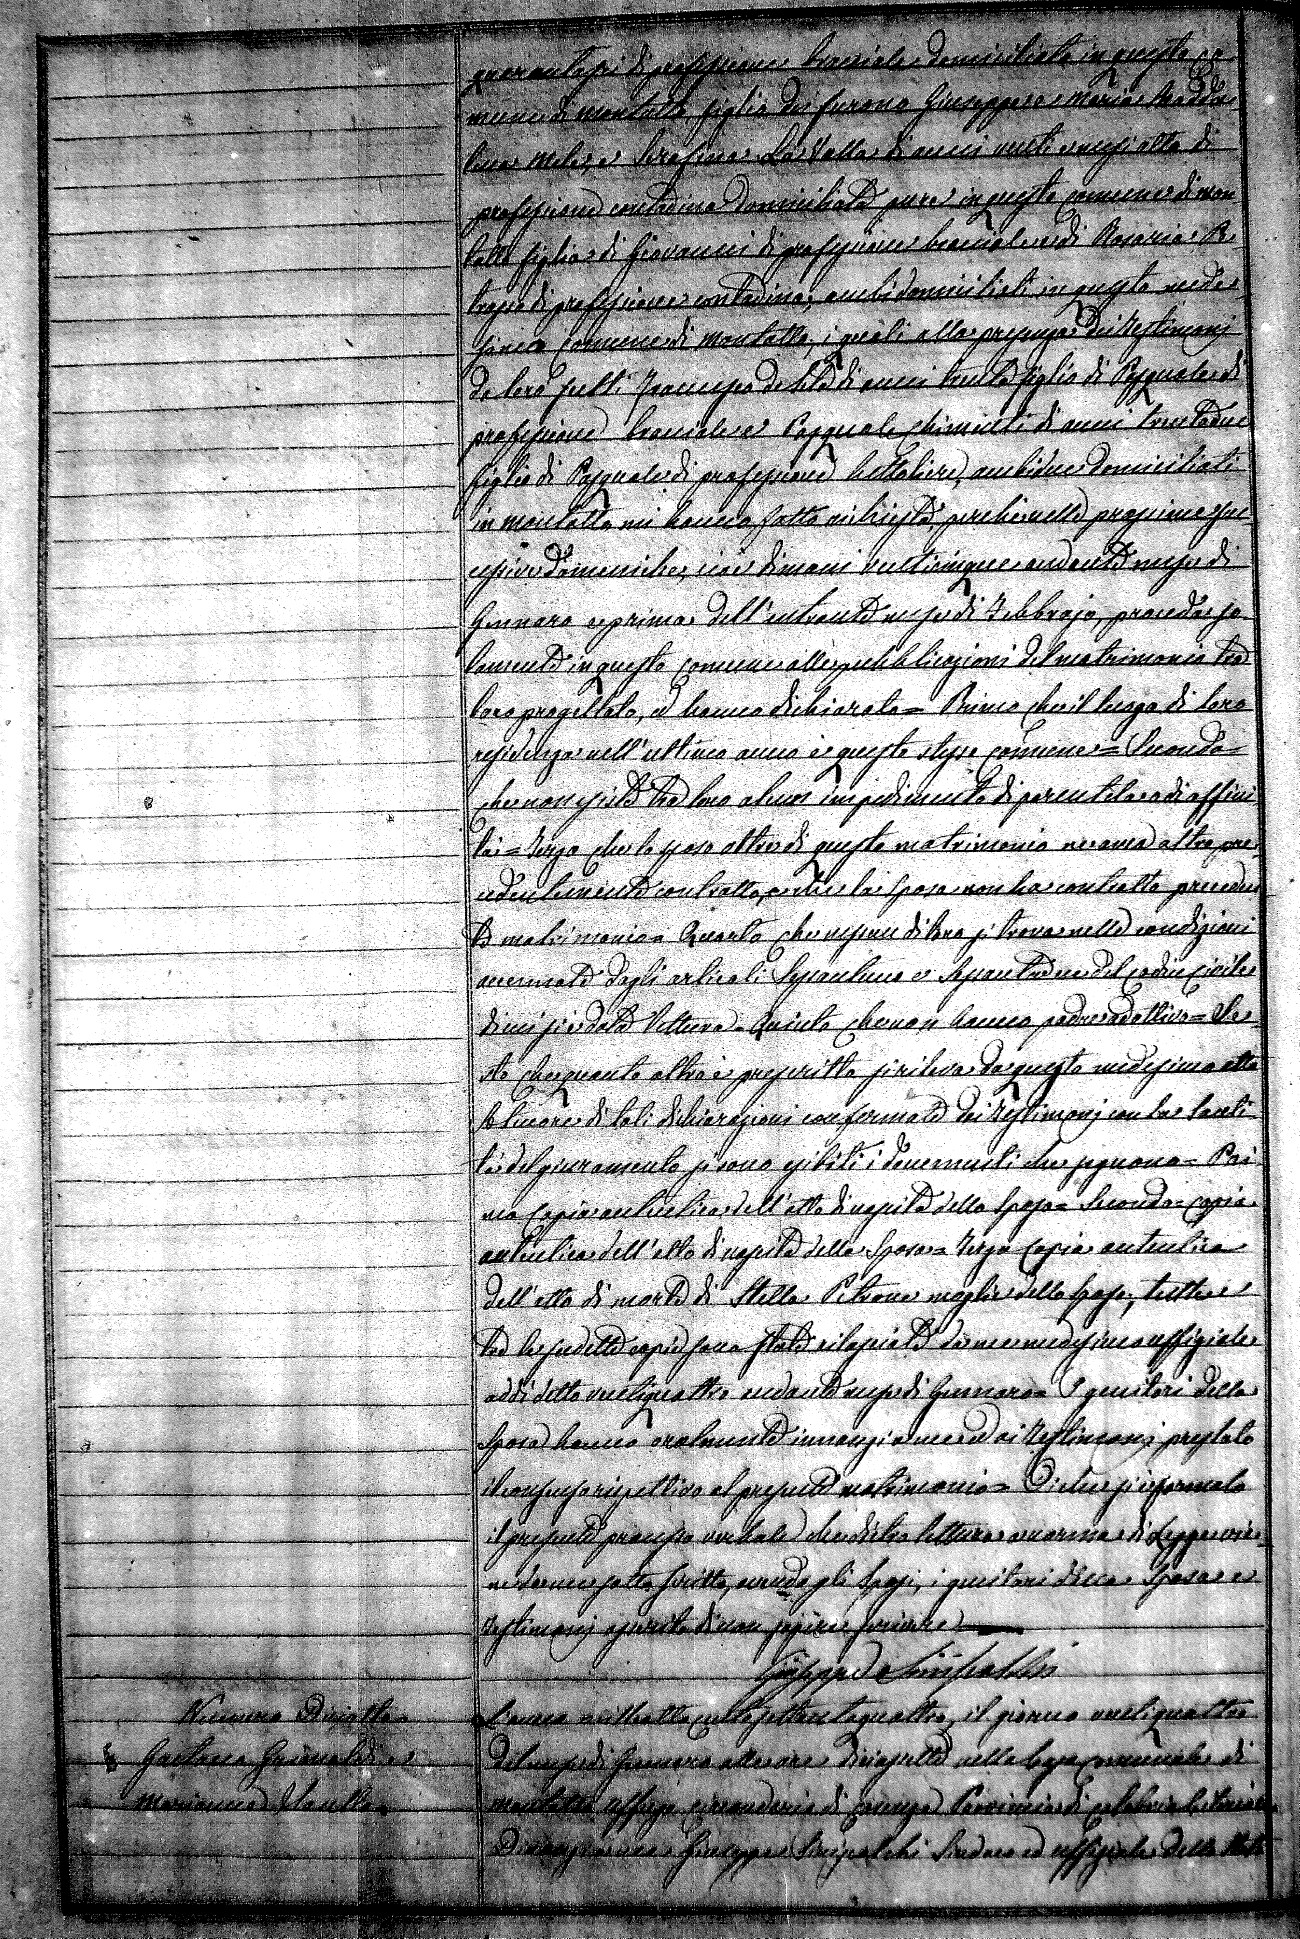 quarantasei di professione bracciale domiciliato in questo co
mune di Montalto, figlio dei furono Giuseppe e Maria
e Serafina La Valle di anni ventiquattro di
professione contadina domiciliata pure in questo comune di Mon
talto figlia di Giovanni di professione bracciale e di Rosaria Pe
trone di professione contadina, ambi domiciliati in questo mede
simo comune di Montalto, i quali alla presenza dei testimonj
da loro scelti Francesco di anni trenta figlio di Pasquale di
professione bracciale e Pasquale Chimenti di anni trentadue
figlio di Pasquale di professione bettoliere, ambidue domiciliati
in Montalto mi hanno fatto richiesta perchè nelle prossime suc
cessive domeniche, cioè dimani venticinque andante mese di
Gennaro e prima dell'entrante mese di Febbrajo, proceda so
lamente in questo comune alle pubblicazioni del matrimonio tra
loro progettato, ed hanno dichiarato = Primo che il luogo di loro
residenza nell'ultimo anno è questo stesso comune = Secondo =
che non esiste tra loro alcun impedimento di parentela o di affini
tà = Terzo che lo sposo oltre di questo matrimonio ne aveva altro pre
cedentemente contratto, e che la sposa non ha contratto preceden
te matrimonio = Quarto che nessun di loro si trova nelle condizioni
accennate dagli articoli sessantuno e sessantadue del codice civile
di cui si è data lettura = Quinto che non hanno padre adottivo = Se
sto che quanto altro è prescritto si rileva da questo medesimo atto
A tenore di tali dichiarazioni confermate dai testimonj con la santi
tà del giuramento si sono esibiti i documenti che seguono = Pri
mo copia autentica dell'atto di nascita dello sposo = Secondo = copia
autentica dell'atto di nascita della sposa = Terzo copia autentica
dell'atto di morte di Stella Petrone moglie dello sposo, tutte e
tre le sudette copie sono state rilasciate da me medesimo uffiziale
addì detto ventiquattro andante mese di Gennaro = I genitori della
sposa hanno oralmente innanzi a me ed ai testimonj prestato
il consenso rispettivo al presente matrimonio = Di che si è formato
il presente processo verbale che dietro lettura a norma di Legge vie
ne da me sottoscritto, avendo gli sposi, i genitori della sposa e
testimonj asserito di non sapere scrivere
Giuseppe
Numero Diciotto
Gaetano Grimaldi e
Marianna
L'anno mille ottocento settantaquattro, il giorno ventiquattro
del mese di Gennaro alle ore diciassette nella Casa comunale di
Montalto Uffugo Circondario di Cosenza Provincia di Calabria Citeriore
Dinanzi a me Giuseppe Sindaco ed uffiziale dello Stato